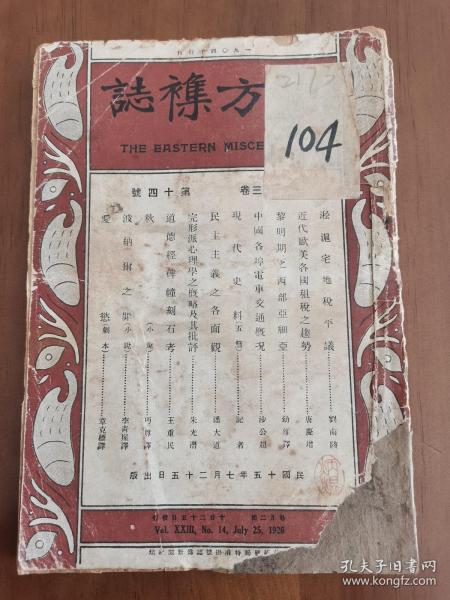 一九〇四年
217
104
方襍誌
THE EASTERN MISCE
三卷 第十四號
淞滬宅地稅平議 劉南陔
近代歐美各國租稅之趨勢 唐慶增
黎明期之西部亞細亞 幼雄譯
中國各埠電車交通概况 沙公超
現代史料(五篇) 記者
民主主義之各面觀 潘大道
完形派心理學之概略及其批評 朱光潛
道德經碑幢刻石考 王重民
秋(小說) 丏尊譯
波納爾之罪(小說) 李青崖譯
愛慾(劇本) 章克標譯
民國十五年七月二十五日出版
每月二期 十日二十五日發行
Vol. XXIII, No. 14, July 25, 1926
孔夫子旧书网